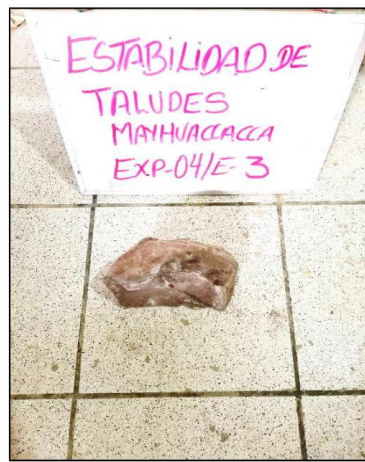 ESTABILIDAD DE
TALUDES
MAYHUACCACCA
EXP-04/E-3